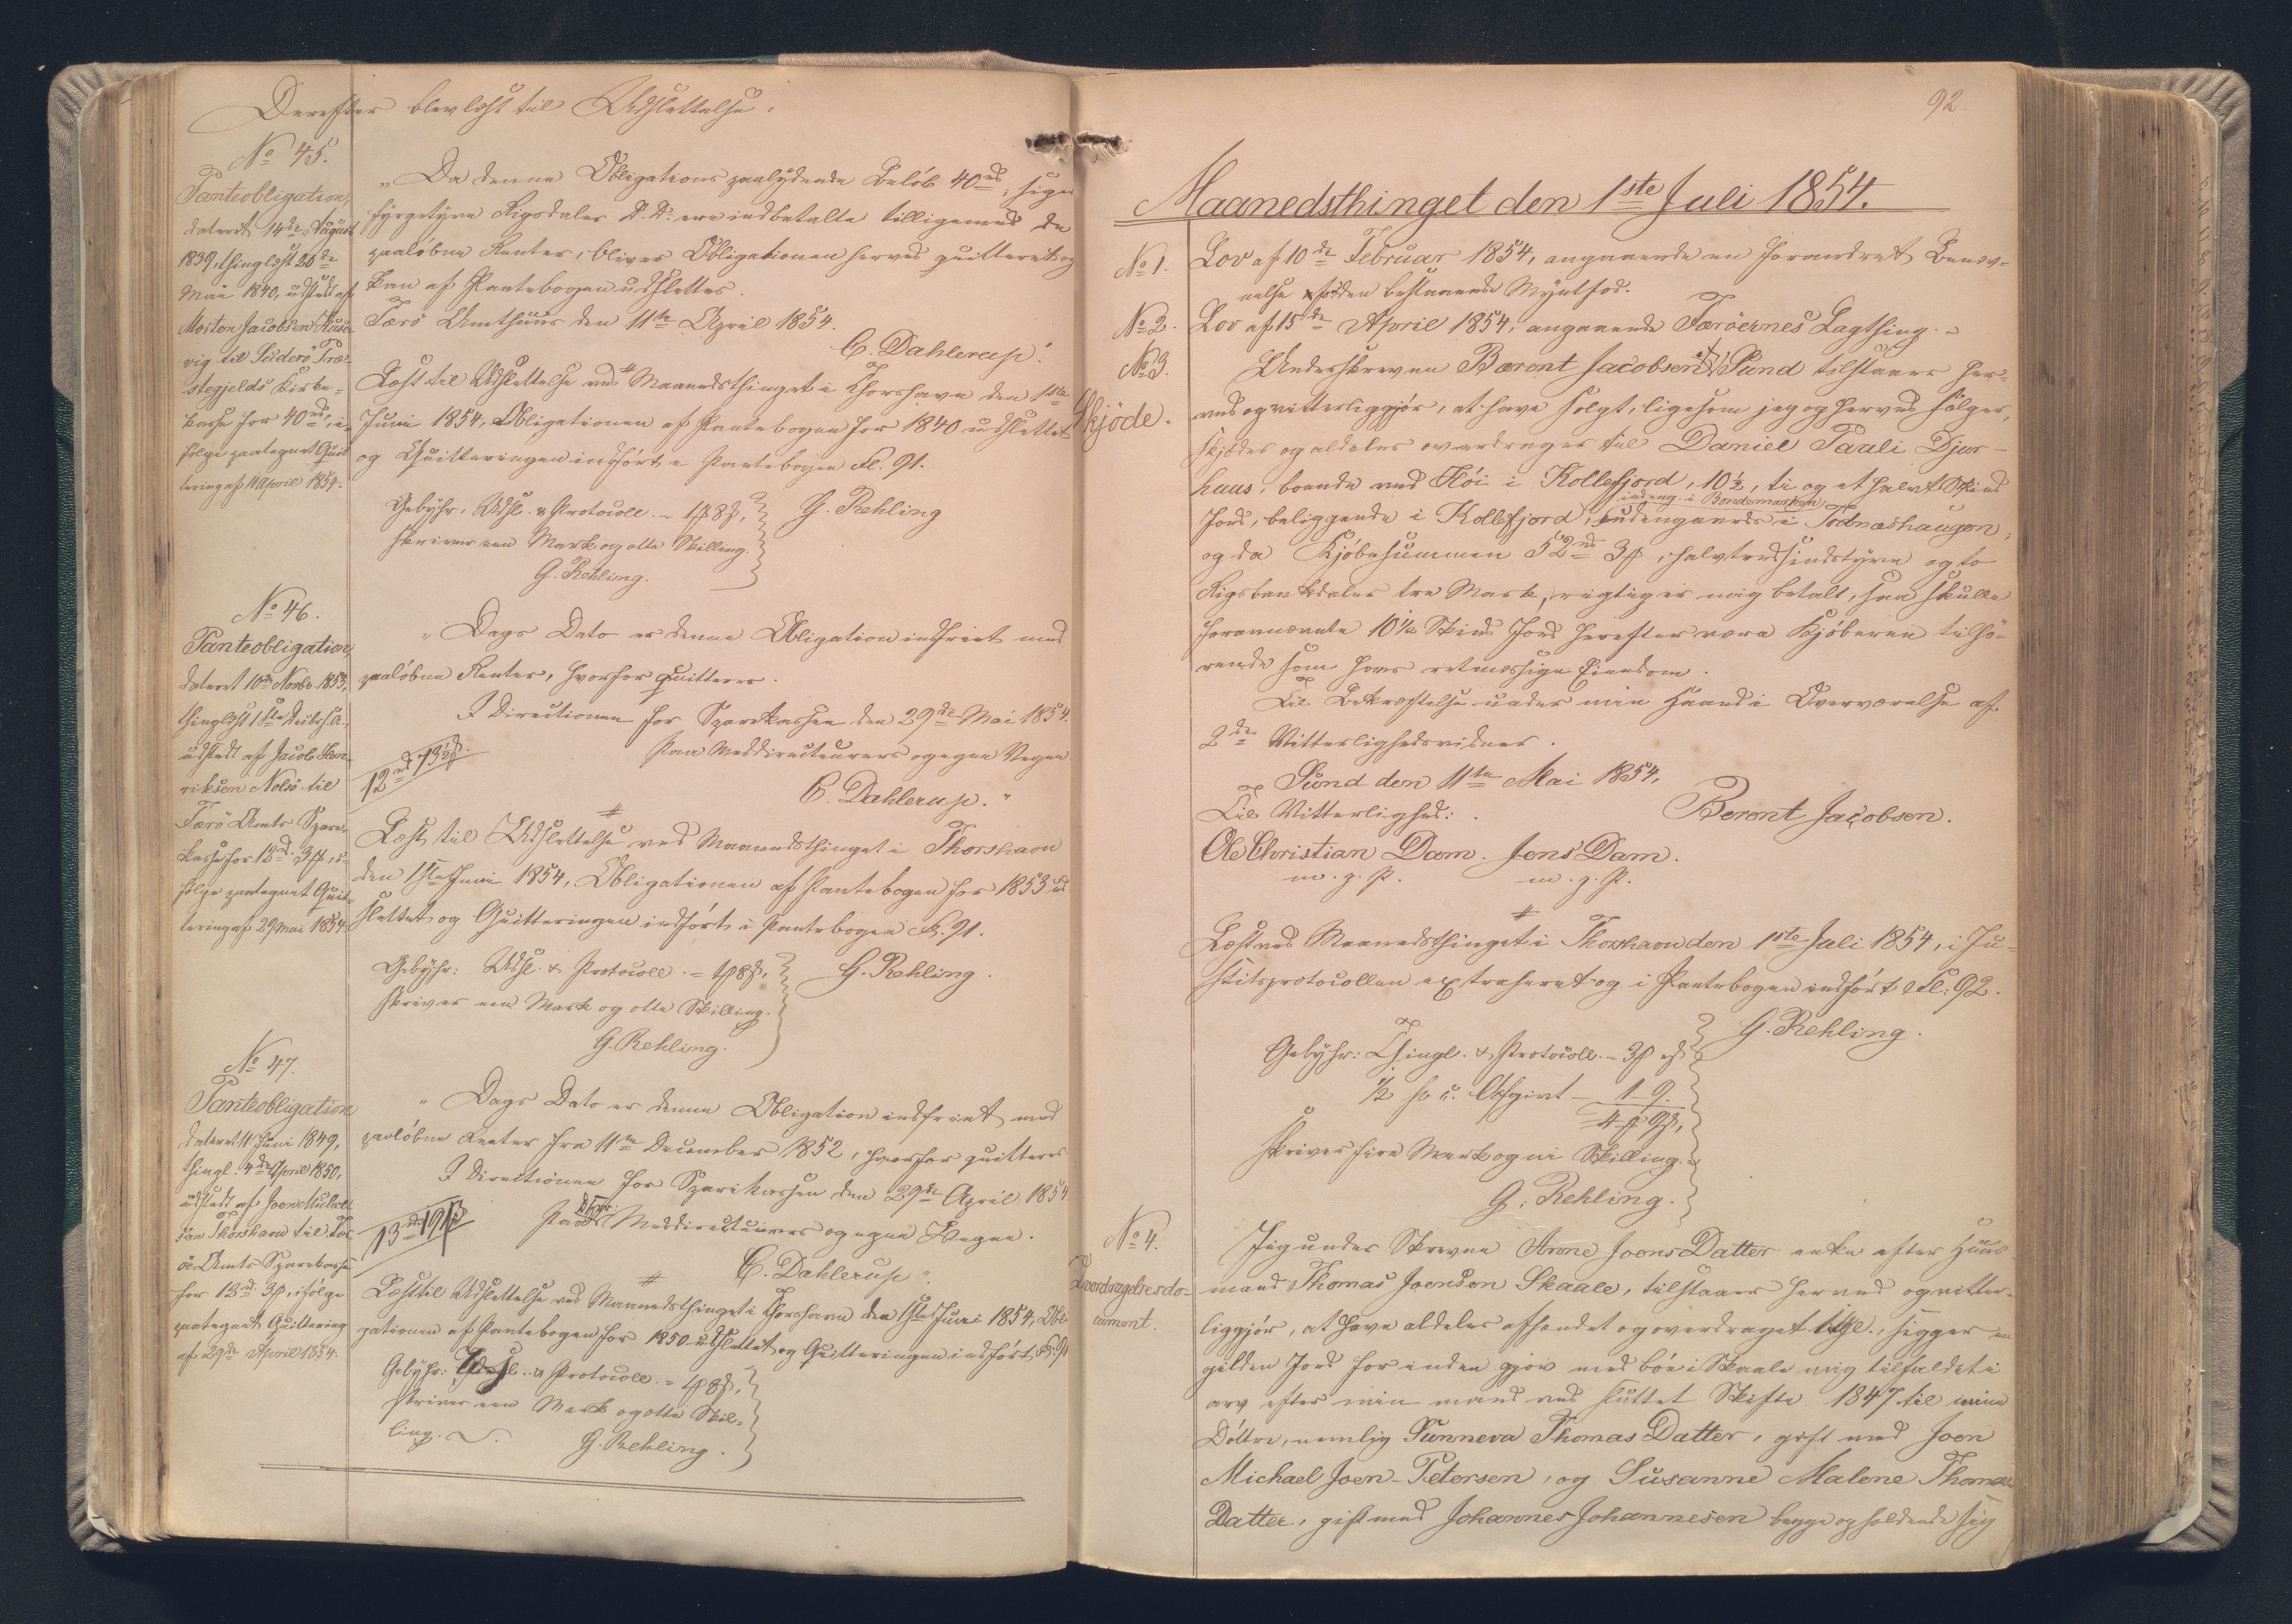 Derefter blev læst til Udslettelse:
No 45.
Panteobligation,
dateret 14de August
1839, thinglæst 20de
Mai 1840, udstedt af
Morten Jacobsen Husa-
vig til Suderö Præ-
stegjelds Kirke-
kasse for 40rd, i
følge paategnet Quit
tering af 11 April 1854.
„Da denne Obligations paalydende Beløb 40rd, siger
fyrgetyve Rigsdaler S. M. ere indbetalte tilligemed de
paaløbne Renter, bliver Obligationen herved quitteret og
kan af Pantebogen udslettes.
Færö Amthuus den 11te April 1854.
C. Dahlerup."
Læst til Udslettelse ved Maanedsthinget i Thorshavn den 1ste
Juni 1854, Obligationen af Pantebogen for 1840 udslettet
og Quitteringen indført i Pantebogen Fol. 91.
Gebyhr. Udsl. & Protocoll. - 1# 8ß,
skriver een Mark og otte Skilling.
G. Rehling
G. Rehling.
No 46.
Panteobligation,
dateret 10de Novbr. 1853,
thinglæst 1ste Decbr. s. A.,
udstedt af Jacob Hen-
riksen Nolsö til
Færö Amts Spare-
kasse for 13rd 3#, i-
følge paategnet Quit-
tering af 29 Mai 1854.
„Dags Dato er denne Obligation indfriet med
paaløbne Renter, hvorfor quitteres.
I Directionen for Sparekassen den 29de Mai 1854.
Paa Meddirecteurers og egne Vegne
C. Dahlerup."
Læst til Udslettelse ved Maanedsthinget i Thorshavn
den 1ste Juni 1854, Obligationen af Pantebogen for 1853 ud
slettet og Quitteringen indført i Pantebogen Fol. 91.
Gebyhr: Udsl. & Protocoll. = 1# 8ß,
skriver een Mark og otte Skilling.
G. Rehling.
G. Rehling.
No 47.
Panteobligation
dateret 11 Juni 1849,
thingl. 4de April 1850,
udstedt af Joen
Thorshavn til Fær
öe Amts Sparekasse
for 13rd 3#, ifølge
paategnet Quittering
af 29de April 1854.
„Dags Dato er denne Obligation indfriet med
paaløbne Renter fra 11te December 1852, hvorfor quitteres
I Directionen for Sparekassen den 29de April 1854
Paa Meddirecteurers og egne Vegne.
C. Dahlerup."
Læst til Udslettelse ved Maanedsthinget i Thorshavn den 1ste Juni 1854, Obli
gationen af Pantebogen for 1850 udslettet og Quitteringen indført Fol. 91
Gebyhr: Udsl. & Protocoll. = 1# 8ß,
skriver een Mark og otte Skil-
ling.
G. Rehling.
92.
Maanedsthinget den 1ste Juli 1854.
No 1.
Lov af 10de Februar 1854, angaaende en forandret Benæv-
nelse for den bestaaende Myntfod.
No 2.
Lov af 15de April 1854, angaaende Færöernes Lagthing.
No 3.
Skjöde.
Underskrevne Bærent Jacobsen af Sund tilstaaer her-
ved og vitterliggjør, at have solgt, ligesom jeg og herved sælger,
skjøder og aldeles overdrager til Daniel Pauli Djur-
huus, boende ved Høi i Kollefjord, 10½, ti og et halvt Skind
Jord, beliggende i Kollefjord, udengaards i Todneshaugen,
indeng. i Bondemarken
og da Kjøbesummen 52rd 3#, halvtredsindstyve og to
Rigsbankdaler tre Mark, rigtig er mig betalt, saa skulle
forannævnte 10½ Skind Jord herefter være Kjøberen tilhø-
rende som hans retmæssige Eiendom.
Til Bekræftelse under min Haand i Overværelse af
2de Vitterlighedsvidner.
Sund den 11te Mai 1854.
Til Vitterlighed:
Berent Jacobsen.
Ole Christian Dam. Jens Dam.
m. p. P. m. p. P.
Læst ved Maanedsthinget i Thorshavn den 1ste Juli 1854, i Ju-
stitsprotocollen extraheret og i Pantebogen indført Fol: 92.
G. Rehling.
Gebyhr: Thingl. & Protocoll. - 3# "ß
½ pr. c. Afgivt - 1 - 9.
4 # 9ß,
skriver fire Mark og ni Skilling.
G. Rehling.
No 4.
Overdragelsesdo-
cument.
Jeg under Skrevne Anne Joens Datter enke efter Huus
mand Thomas Joensen Skaale, tilstaaer herved og vitter-
liggjør, at have aldeles afhændet og overdraget 1 Gl., siger en
gylden Jord for inden gjov med bøe i Skaale mig tilfaldet i
arv efter min mand ved sluttet Skifte 1847 til mine
Döttre, nemlig Sunneva Thomas Datter, gift med Joen
Michael Joen-Petersen, og Susanne Malene Thomas
Datter, gift med Johannes Johannesen begge opholdende sig